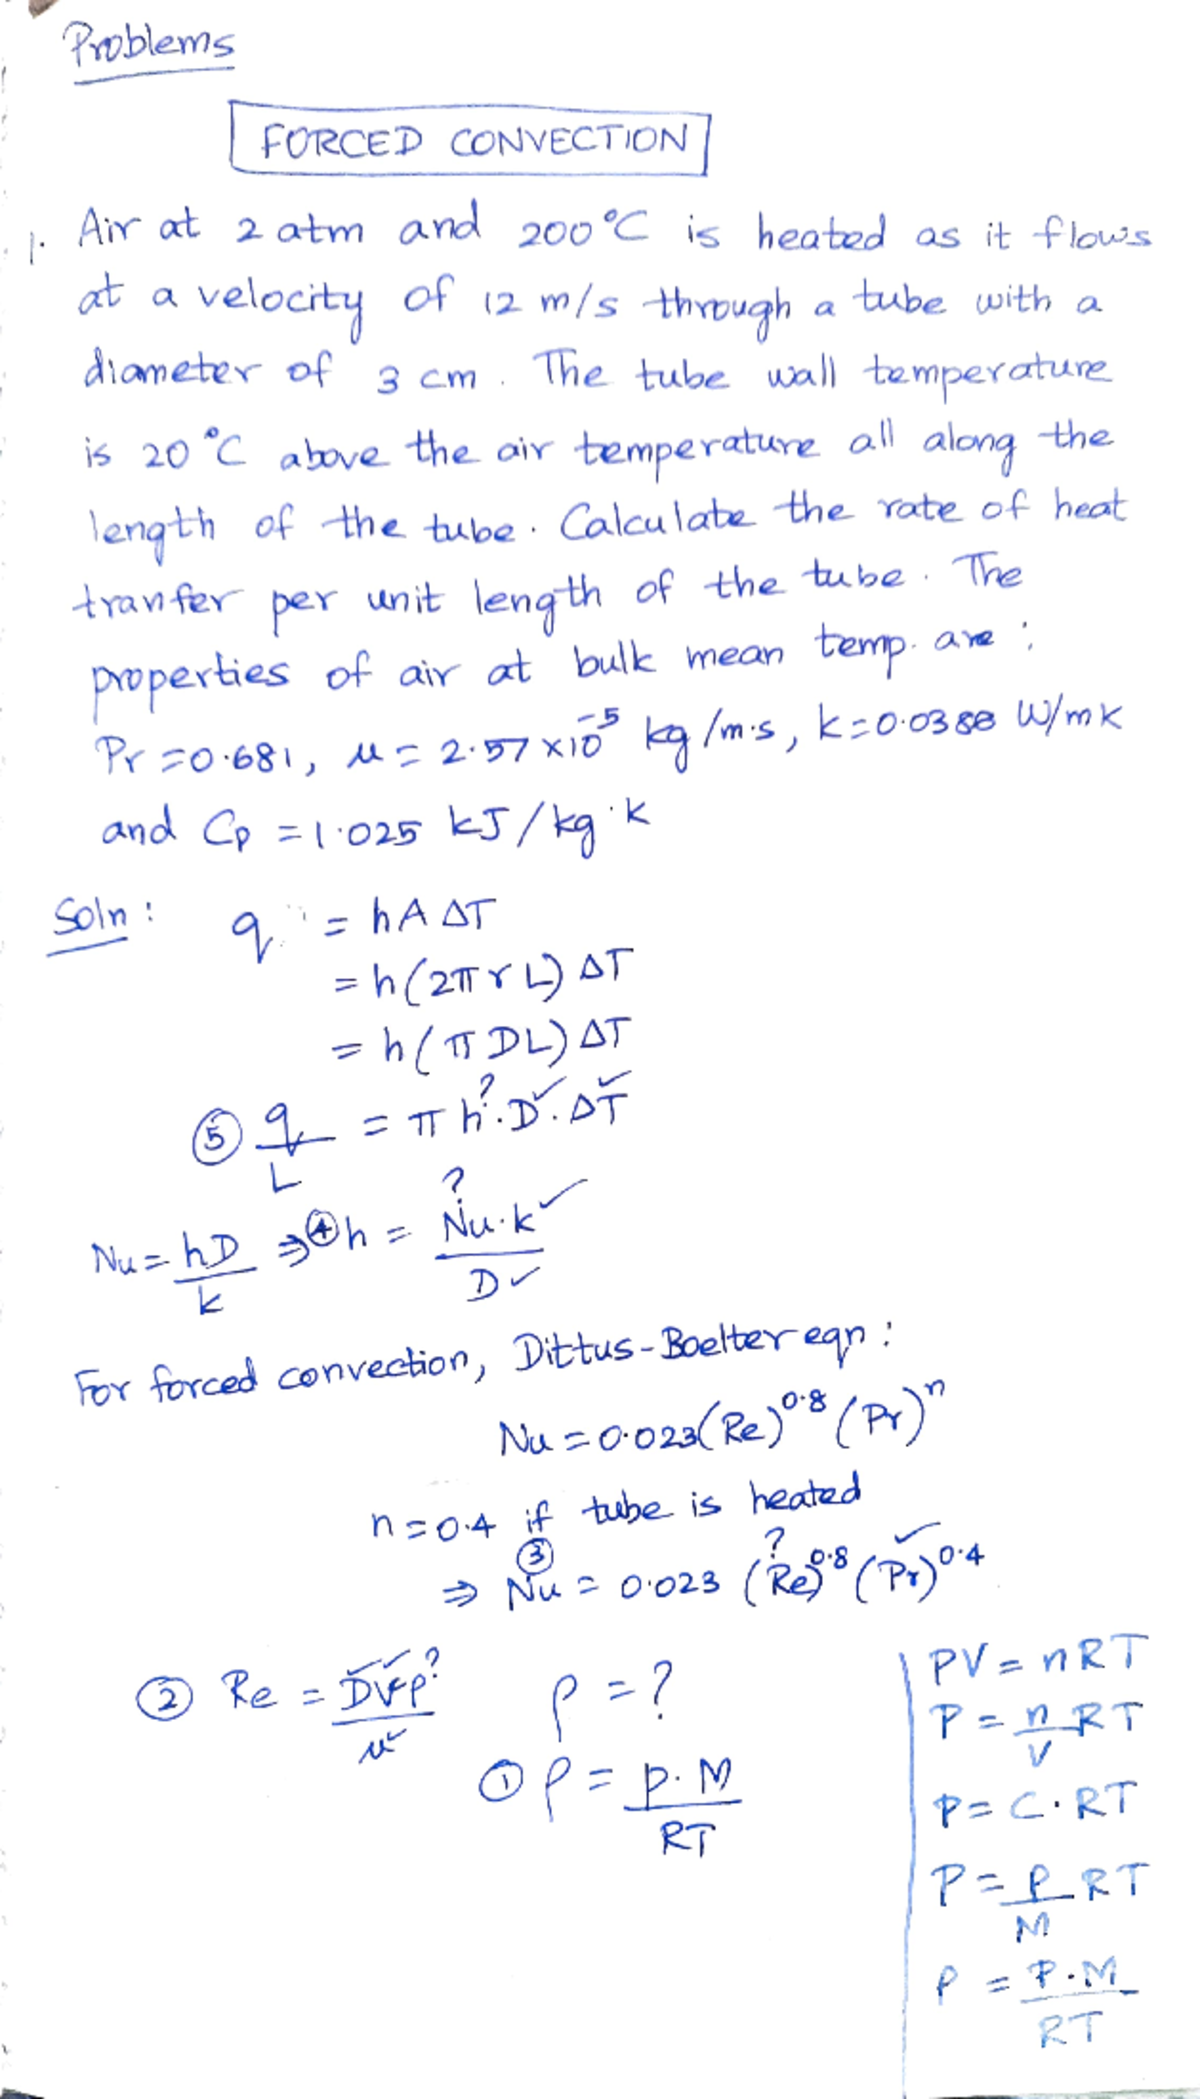 Problems
FORCED CONVECTION
1. Air at 2 atm and 200°C is heated as it flows
at a velocity of 12 m/s through a tube with a
diameter of 3 cm. The tube wall temperature
is 20°C above the air temperature all along the
length of the tube. Calculate the rate of heat
tranfer per unit length of the tube. The
properties of air at bulk mean temp. are:
Pr = 0.681, μ = 2.57 × 10⁻⁵ kg/m·s, k = 0.0388 W/mK
and Cp = 1.025 kJ/kg·K
Soln: q = hA ΔT
= h(2πrL) ΔT
= h(πDL) ΔT
⑤ q/L = π h?·D✓·ΔT✓
Nu = hD/k ⇒ ④ h = Nu?·k✓/D✓
For forced convection, Dittus-Boelter eqn:
Nu = 0.023(Re)^0.8 (Pr)^n
n = 0.4 if tube is heated
⇒ ③ Nu = 0.023 (Re?)^0.8 (Pr✓)^0.4
② Re = D✓V✓ρ?/μ✓ ρ = ?
① ρ = P·M/RT
PV = nRT
P = n/V RT
P = C·RT
P = ρ/M RT
ρ = P·M/RT